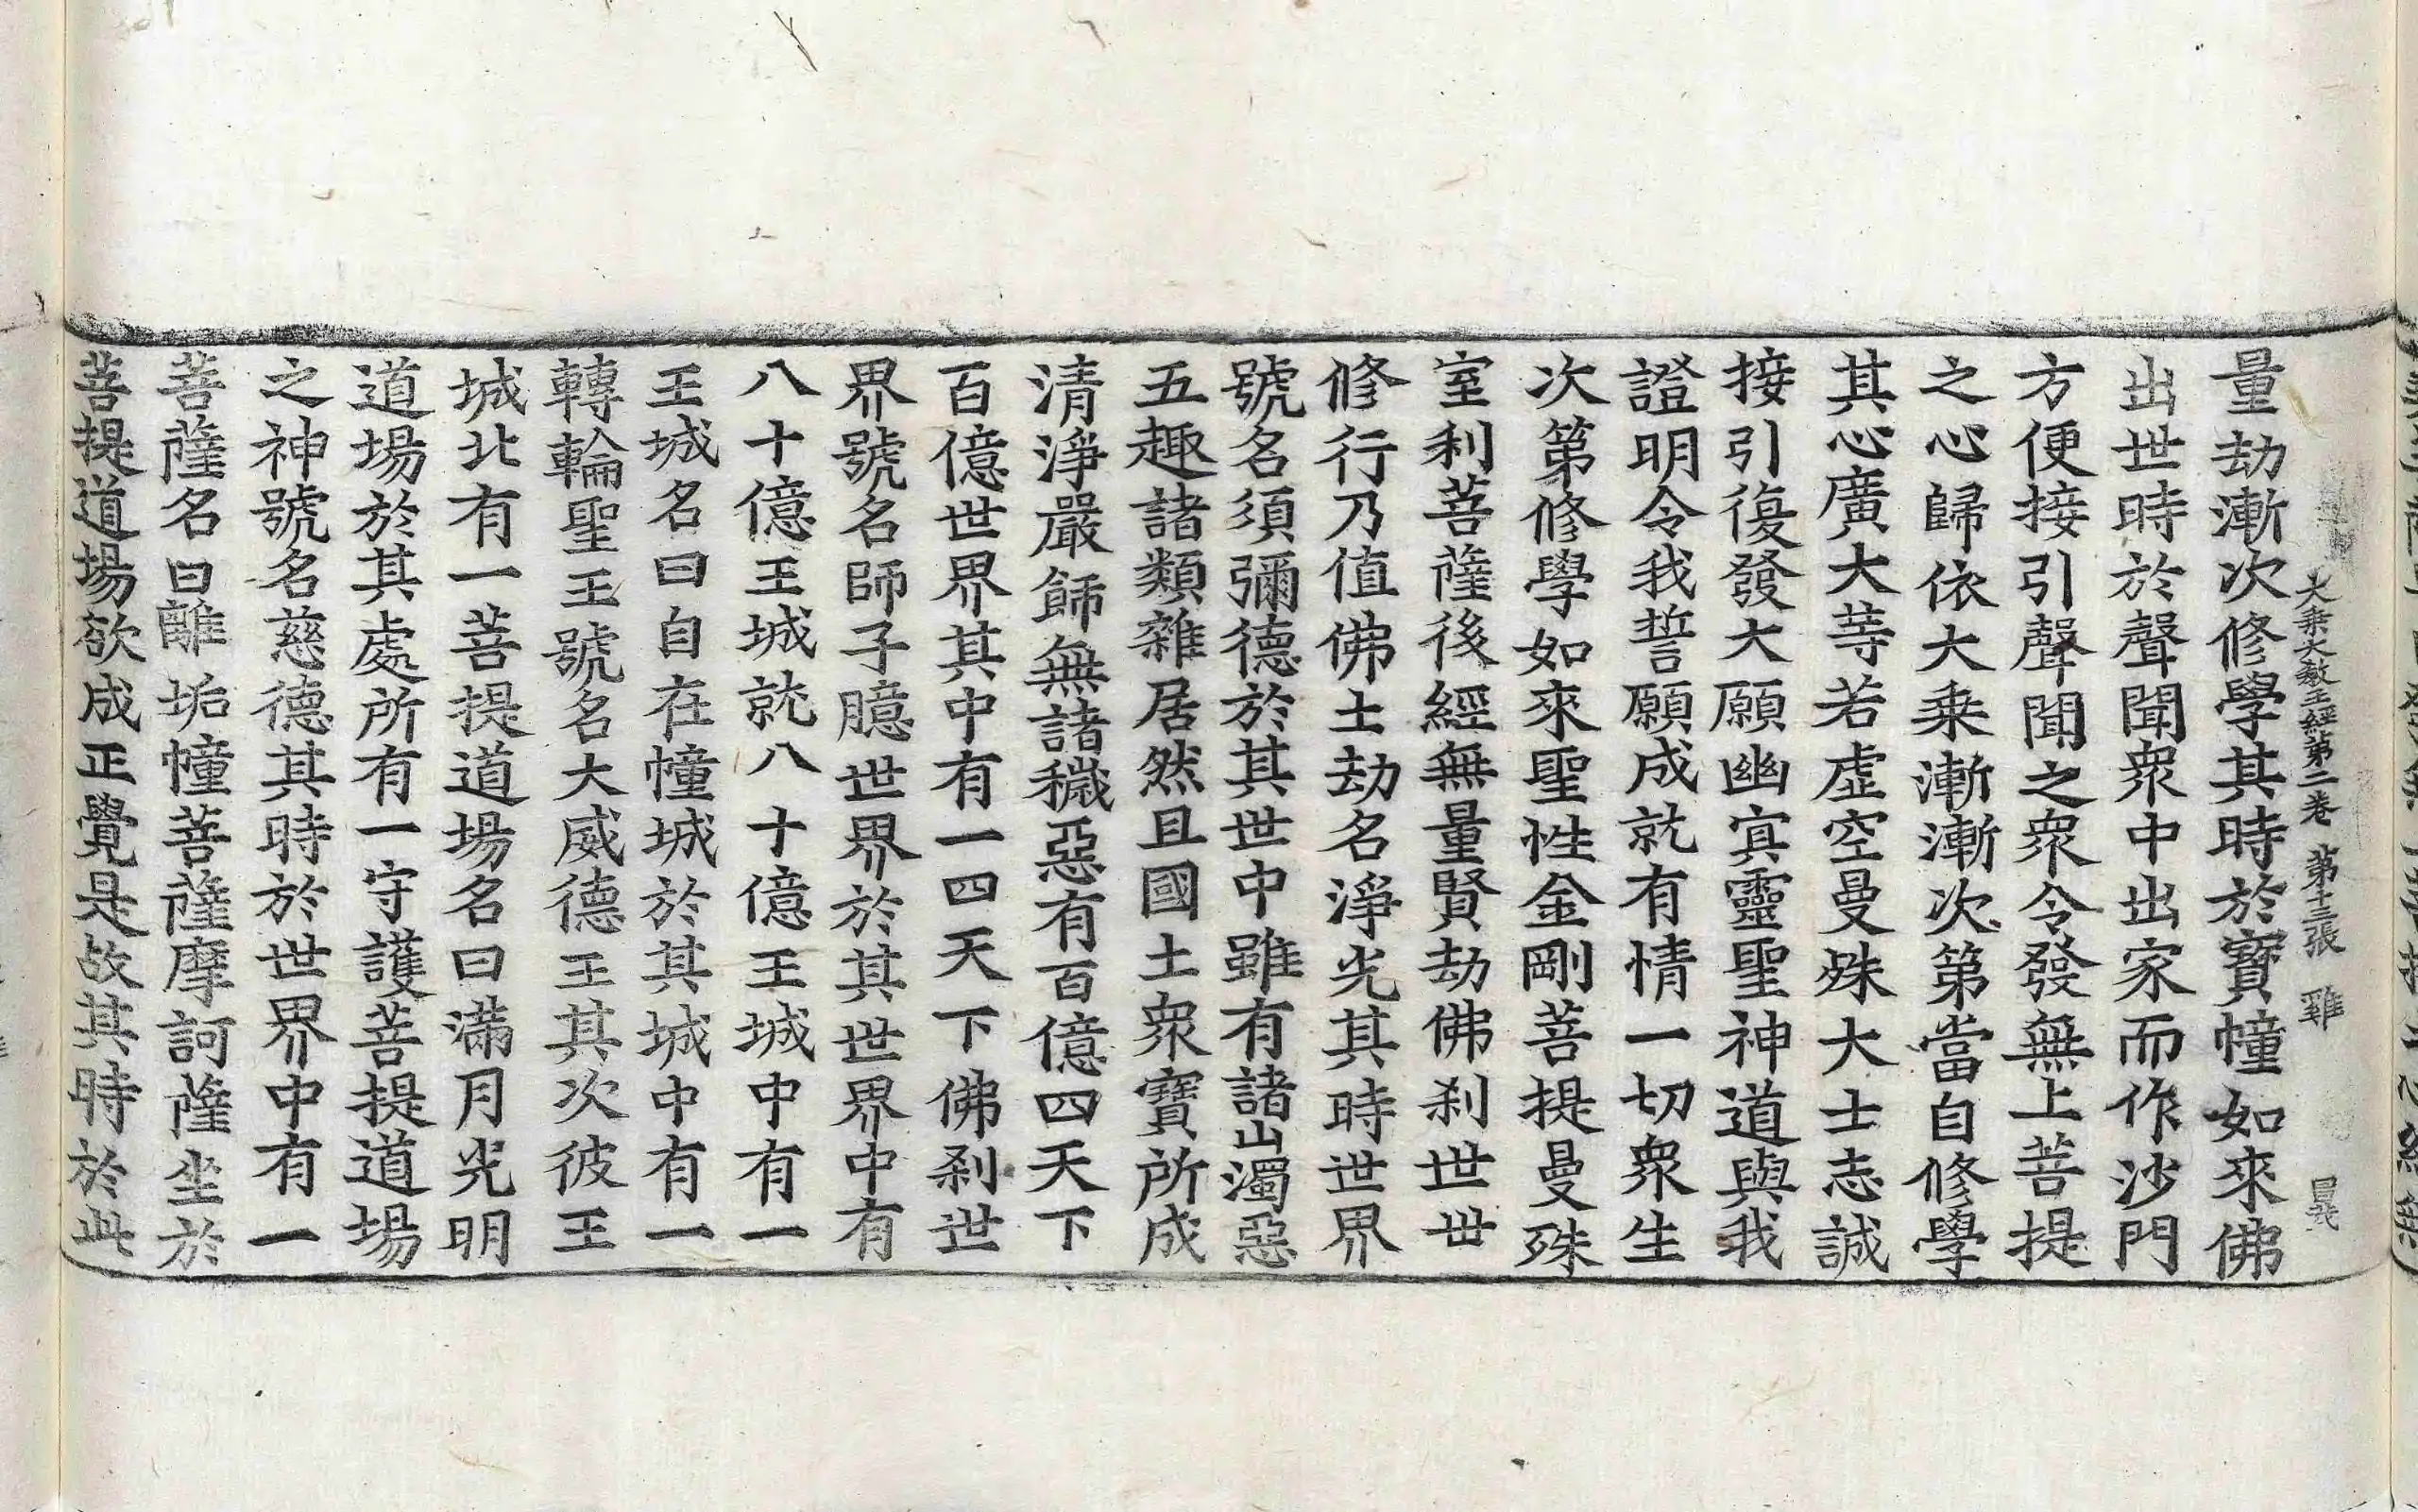 大乘大敎王經第二卷　第十三張　雞
量劫漸次修學其時於寶幢如來佛
出世時於聲聞衆中出家而作沙門
方便接引聲聞之衆令發無上菩提
之心歸依大乘漸漸次第當自修學
其心廣大等若虛空曼殊大士志誠
接引復發大願幽冥靈聖神道與我
證明令我誓願成就有情一切衆生
次第修學如來聖性金剛菩提曼殊
室利菩薩後經無量賢劫佛刹世世
修行乃值佛土劫名淨光其時世界
號名須彌德於其世中雖有諸山濁惡
五趣諸類雜居然且國土衆寶所成
清淨嚴飾無諸穢惡有百億四天下
百億世界其中有一四天下佛刹世
界號名師子臆世界於其世界中有
八十億王城就八十億王城中有一
王城名曰自在幢城於其城中有一
轉輪聖王號名大威德王其次彼王
城北有一菩提道場名曰滿月光明
道場於其處所有一守護菩提道場
之神號名慈德其時於世界中有一
菩薩名曰離垢幢菩薩摩訶薩坐於
菩提道場欲成正覺是故其時於此